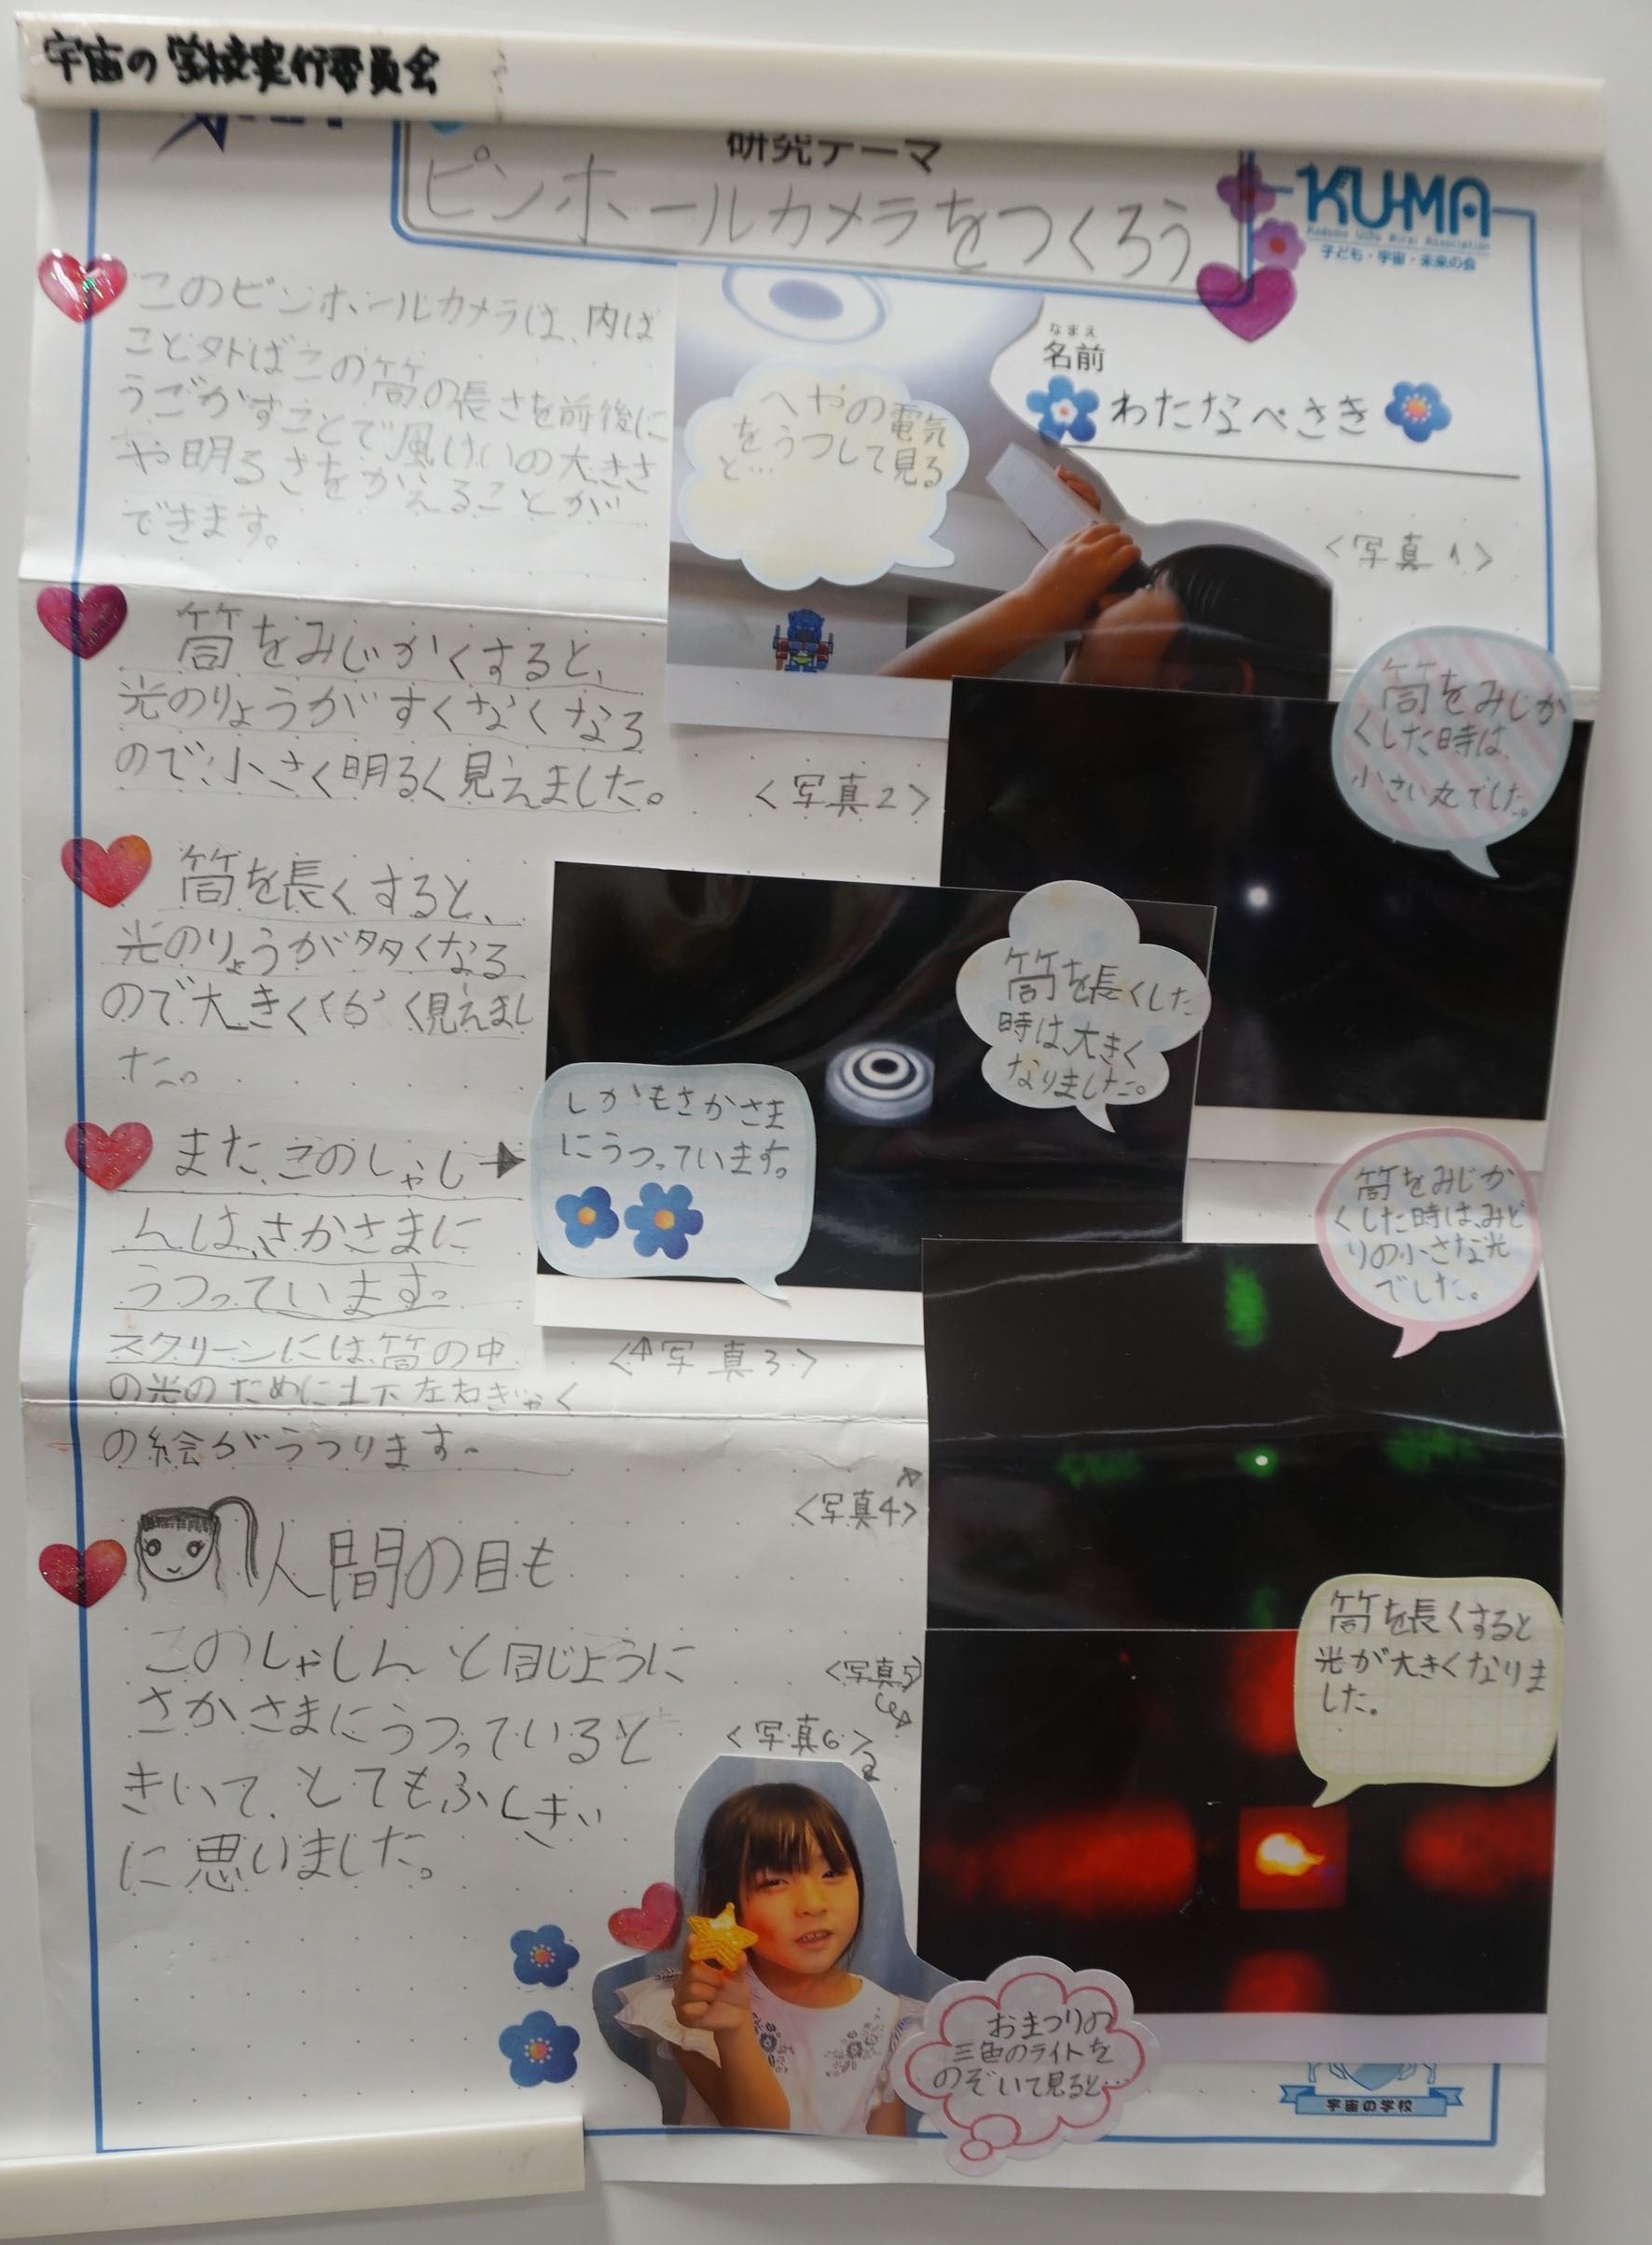 宇宙の学校実行委員会
研究テーマ
ピンホールカメラをつくろう
KU-MA
Kodomo Uchu Mirai Association
子ども・宇宙・未来の会
なまえ
名前
わたなべさき
このピンホールカメラは、内ば
こと外ばこの筒の長さを前後に
うごかすことで風けいの大きさ
や明るさをかえることが
できます。
へやの電気
をうつして見る
と…
<写真1>
筒をみじかくすると、
光のりょうがすくなくなる
ので小さく明るく見えました。
<写真2>
筒をみじか
くした時は
小さい丸でした。
筒を長くすると、
光のりょうが多くなる
ので大きくくらく見えまし
た。
筒を長くした
時は、大きく
なりました。
また、このしゃし
んは、さかさまに
うつっています。
スクリーンには、筒の中
の光のために上下左右ぎゃく
の絵がうつります。
しかもさかさま
にうつっています。
<写真3>
筒をみじか
くした時は、みど
りの小さな光
でした。
<写真4>
人間の目も
このしゃしんと同じように
さかさまにうつっていると
きいて、とてもふしぎ
に思いました。
<写真5>
筒を長くすると
光が大きくなりま
した。
<写真6>
おまつりの
三色のライトを
のぞいて見ると…
宇宙の学校